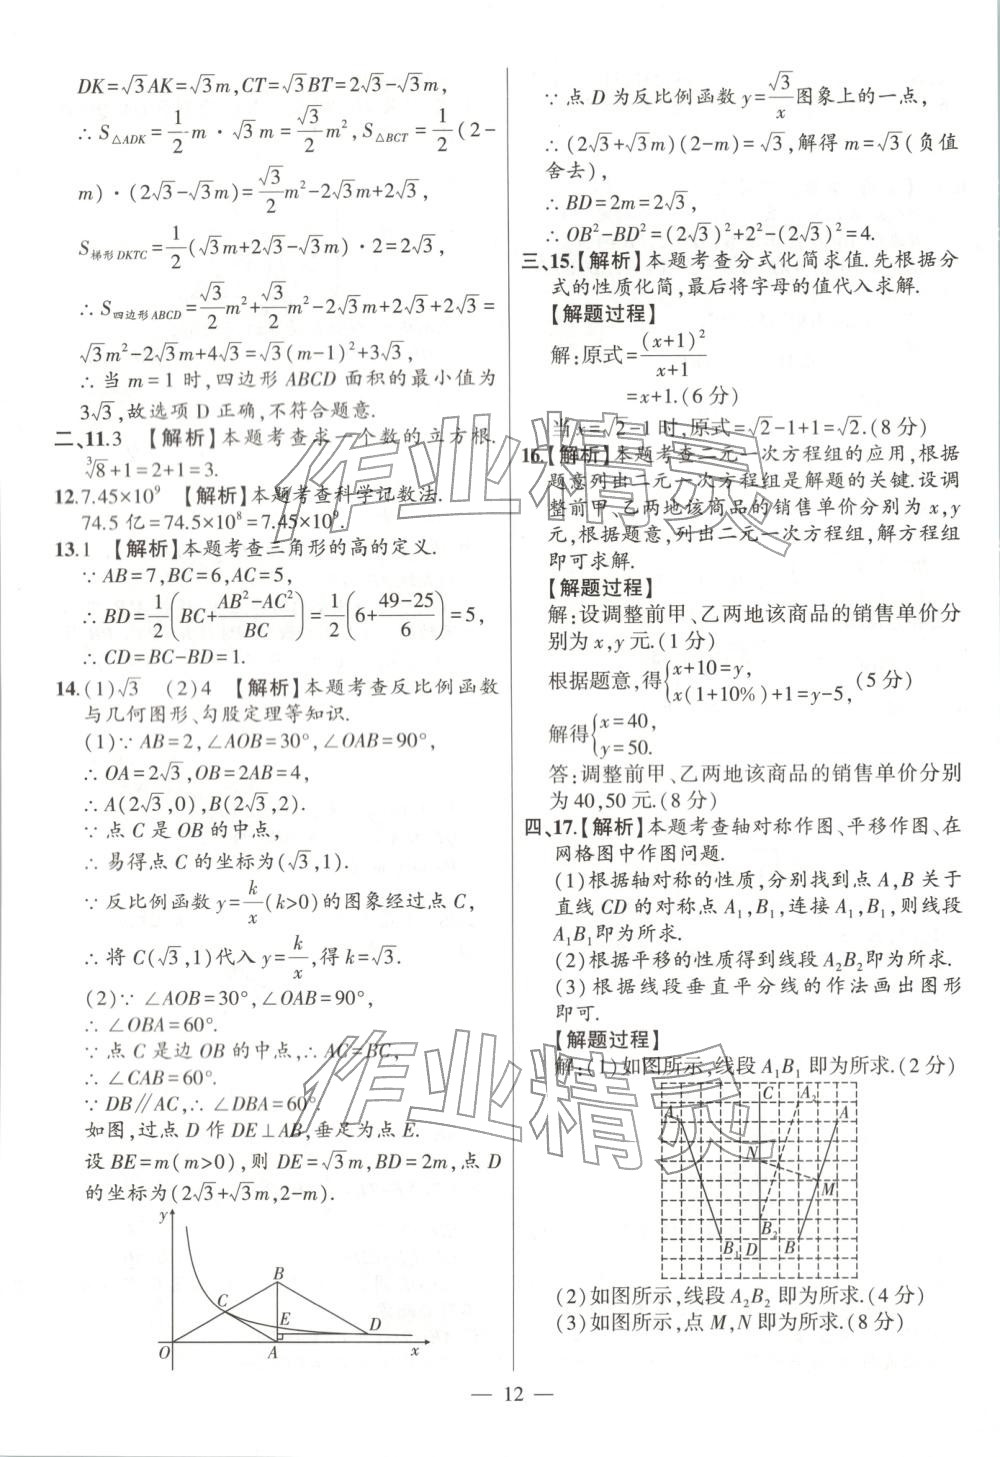 DK=√3AK=√3m,CT=√3BT=2√3-√3m,
∴S△ADK=1/2 m·√3m=√3/2 m²,S△BCT=1/2(2-
m)·(2√3-√3m)=√3/2 m²-2√3m+2√3,
S梯形DKTC=1/2(√3m+2√3-√3m)·2=2√3,
∴S四边形ABCD=√3/2 m²+√3/2 m²-2√3m+2√3+2√3=
√3m²-2√3m+4√3=√3(m-1)²+3√3,
∴当 m=1 时,四边形 ABCD 面积的最小值为
3√3,故选项 D 正确,不符合题意.
二、11.3 【解析】本题考查求一个数的立方根.
³√8+1=2+1=3.
12.7.45×10⁹ 【解析】本题考查科学记数法.
74.5 亿=74.5×10⁸=7.45×10⁹.
13.1 【解析】本题考查三角形的高的定义.
∵AB=7,BC=6,AC=5,
∴BD=1/2(BC+(AB²-AC²)/BC)=1/2(6+(49-25)/6)=5,
∴CD=BC-BD=1.
14.(1)√3 (2)4 【解析】本题考查反比例函数
与几何图形、勾股定理等知识.
(1)∵AB=2,∠AOB=30°,∠OAB=90°,
∴OA=2√3,OB=2AB=4,
∴A(2√3,0),B(2√3,2).
∵点 C 是 OB 的中点,
∴易得点 C 的坐标为(√3,1).
∵反比例函数 y=k/x(k>0)的图象经过点 C,
∴将 C(√3,1)代入 y=k/x,得 k=√3.
(2)∵∠AOB=30°,∠OAB=90°,
∴∠OBA=60°.
∵点 C 是边 OB 的中点,∴AC=BC,
∴∠CAB=60°.
∵DB∥AC,∴∠DBA=60°.
如图,过点 D 作 DE⊥AB,垂足为点 E.
设 BE=m(m>0),则 DE=√3m,BD=2m,点 D
的坐标为(2√3+√3m,2-m).
y
B
C
E
D
O
A
x
∵点 D 为反比例函数 y=√3/x图象上的一点,
∴(2√3+√3m)(2-m)=√3,解得 m=√3(负值
舍去),
∴BD=2m=2√3,
∴OB²-BD²=(2√3)²+2²-(2√3)²=4.
三、15.【解析】本题考查分式化简求值.先根据分
式的性质化简,最后将字母的值代入求解.
【解题过程】
解:原式=(x+1)²/(x+1)
=x+1.(6 分)
当 x=√2-1 时,原式=√2-1+1=√2.(8 分)
16.【解析】本题考查二元一次方程组的应用,根据
题意列出二元一次方程组是解题的关键.设调
整前甲、乙两地该商品的销售单价分别为 x,y
元,根据题意,列出二元一次方程组,解方程组
即可求解.
【解题过程】
解:设调整前甲、乙两地该商品的销售单价分
别为 x,y 元.(1 分)
根据题意,得{x+10=y, x(1+10%)+1=y-5, (5 分)
解得{x=40, y=50.
答:调整前甲、乙两地该商品的销售单价分别
为 40,50 元.(8 分)
四、17.【解析】本题考查轴对称作图、平移作图、在
网格图中作图问题.
(1)根据轴对称的性质,分别找到点 A,B 关于
直线 CD 的对称点 A₁,B₁,连接 A₁,B₁,则线段
A₁B₁即为所求.
(2)根据平移的性质得到线段 A₂B₂即为所求.
(3)根据线段垂直平分线的作法画出图形
即可.
【解题过程】
解:(1)如图所示,线段 A₁B₁ 即为所求.(2 分)
A₁ C A₂ A
N
M
B₂
B₁ D B
(2)如图所示,线段 A₂B₂ 即为所求.(4 分)
(3)如图所示,点 M,N 即为所求.(8 分)
— 12 —
作业精灵
作业精灵